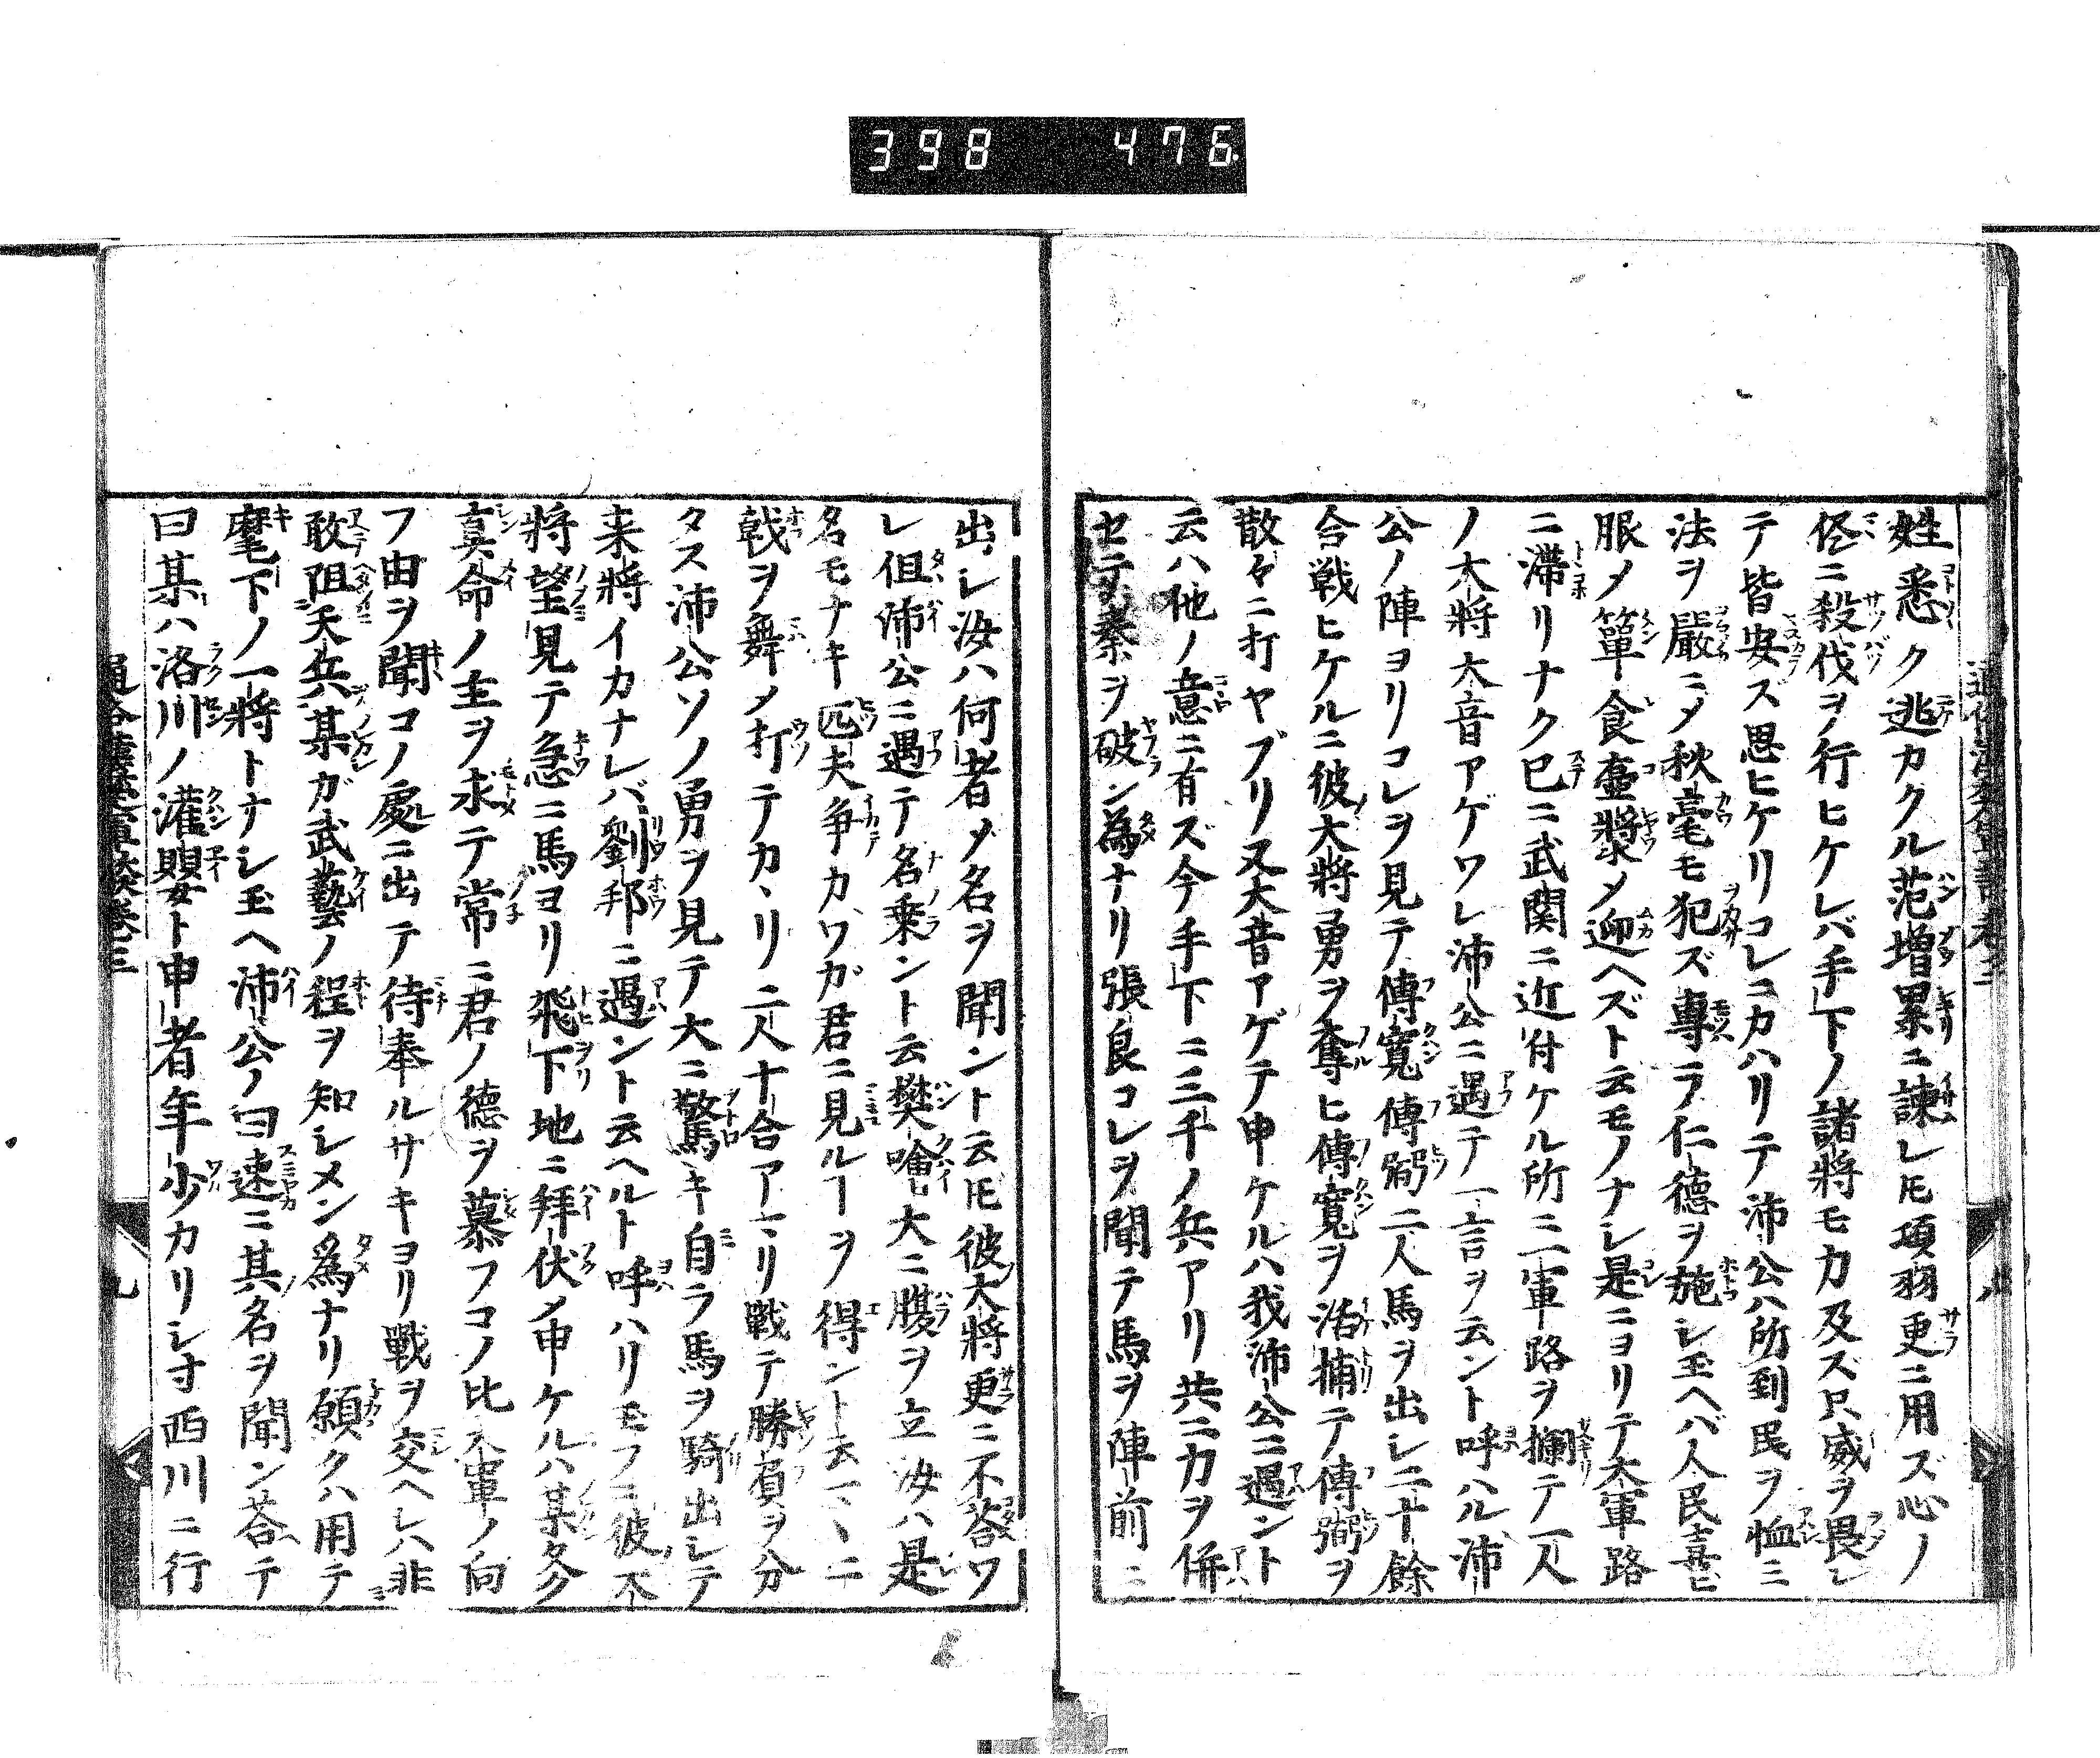 398 476
姓悉ク逃カクル范増累ニ諌レ𪜈項羽更ニ用ズ心ノ
侭ニ殺伐ヲ行ヒケレバ手下ノ諸將モ力及ズ只威ヲ畏レ
テ皆安ス思ヒケリコレニカハリテ沛公ハ所到民ヲ恤ミ
法ヲ嚴ニメ秋毫モ犯ズ專ラ仁德ヲ施シ玉ヘバ人民喜ビ
服メ簞食壷漿メ迎ヘズト云モノナシ是ニヨリテ大軍路
ニ滯リナク已ニ武関ニ近付ケル所ニ一軍路ヲ攔テ一人
ノ大將大音アゲワレ沛公ニ遇テ一言ヲ云ント呼ハル沛
公ノ陣ヨリコレヲ見テ傅寬傅弼二人馬ヲ出シ二十餘
合戦ヒケルニ彼大將勇ヲ奮ヒ傅寬ヲ活捕テ傅弼ヲ
散々ニ打ヤブリ又大音アゲテ申ケルハ我沛公ニ遇ント
云ハ他ノ意ニ有ズ今手下ニ三千ノ兵アリ共ニ力ヲ併
セテ秦ヲ破ン為ナリ張良コレヲ聞テ馬ヲ陣前ニ
出シ汝ハ何者メ名ヲ聞ント云𪜈彼大將更ニ不答ワ
レ但沛公ニ遇テ名乗ント云樊噲大ニ腹ヲ立汝ハ是
名モナキ匹夫争カワガ君ニ見ルヿヲ得ント云マヽニ
戟ヲ舞メ打テカヽリ二人十合アマリ戰テ勝負ヲ分
タス沛公ソノ勇ヲ見テ大ニ驚キ自ラ馬ヲ騎出シテ
来將イカナレバ劉邦ニ遇ント云ヘルト呼ハリモフニ彼大
將望見テ急ニ馬ヨリ飛下地ニ拜伏メ申ケルハ某多分
真命ノ主ヲ求テ常ニ君ノ德ヲ慕フコノ比大軍ノ向
フ由ヲ聞コノ處ニ出テ待奉ルサキヨリ戰ヲ交ヘシハ非
敢阻天兵某ガ武藝ノ程ヲ知シメン爲ナリ願クハ用テ
麾下ノ一將トナシ玉ヘ沛公ノ曰速ニ其名ヲ聞ン荅テ
曰某ハ洛川ノ灌嬰ト申者年少カリシ寸西川ニ行
九